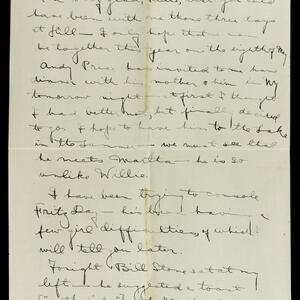 have been with me those three days
at Hill - I only hope that we can
be together this year on the eighth of
Andy Price has invited me to have
dinner with his mother & him in NY
tomorrow night - at first I thought
I had better not, but finally decided
to go. I hope to have him to the Lake
in the Summer - we must see that
he meets Martha - he is so
unlike Willie.
I have been trying to console
Fritz Day - his been having a
few girl difficulties, of which I
will tell you later.
Tonight Bill Stone sat at my
left - he suggested a toast